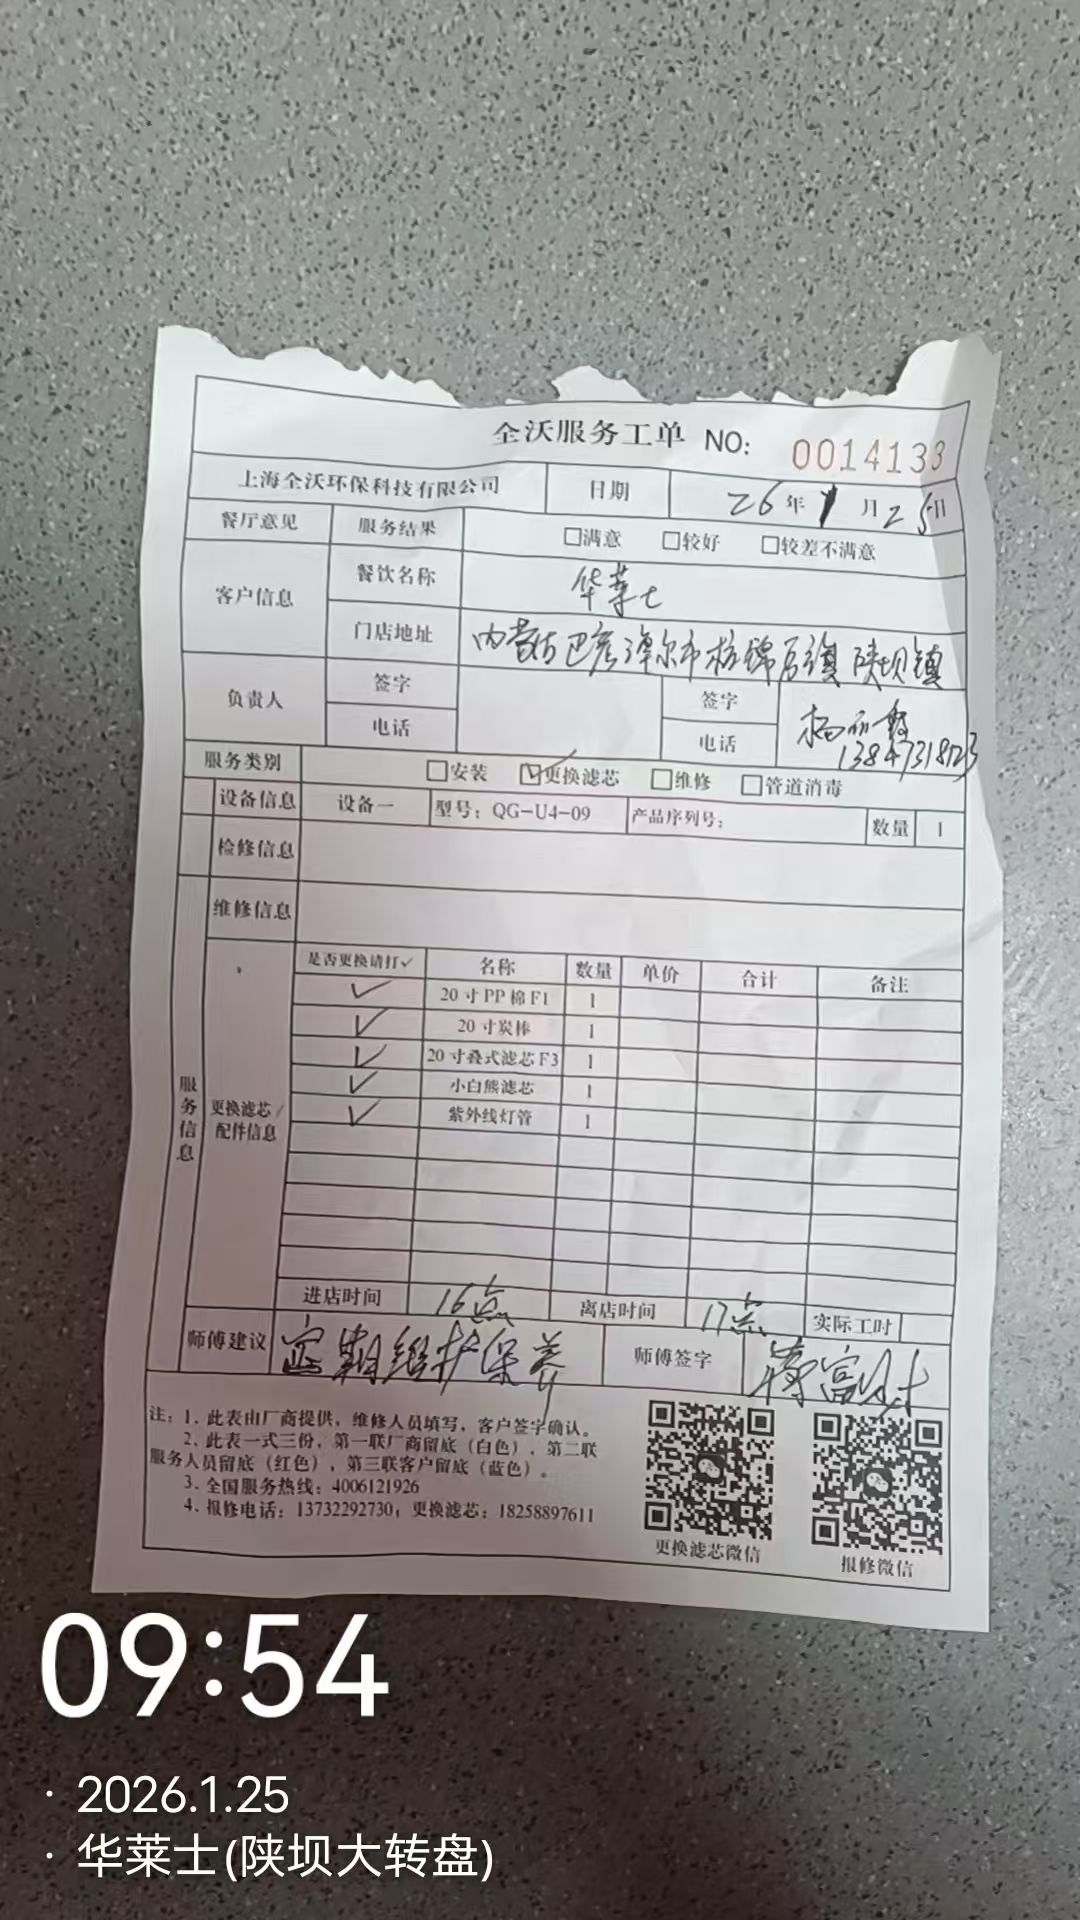 全沃服务工单 NO: 0014133
上海全沃环保科技有限公司 日期 26年1月25日
餐厅意见 服务结果 □满意 □较好 □较差不满意
客户信息 餐饮名称 华莱士
门店地址 内蒙古巴彦淖尔市杭锦后旗陕坝镇
负责人 签字 签字
电话 电话
服务类别 □安装 ☑更换滤芯 □维修 □管道消毒
设备信息 设备一 型号：QG-U4-09 产品序列号： 数量 1
检修信息
维修信息
服务信息
更换滤芯/配件信息
是否更换请打✓ 名称 数量 单价 合计 备注
✓ 20寸PP棉F1 1
✓ 20寸炭棒 1
✓ 20寸叠式滤芯F3 1
✓ 小白熊滤芯 1
✓ 紫外线灯管 1
进店时间 16点 离店时间 17点 实际工时
师傅建议 定期维护保养 师傅签字
注：1、此表由厂商提供，维修人员填写，客户签字确认。
2、此表一式三份，第一联厂商留底（白色），第二联
服务人员留底（红色），第三联客户留底（蓝色）。
3、全国服务热线：4006121926
4、报修电话：13732292730；更换滤芯：18258897611
更换滤芯微信 报修微信
09:54
· 2026.1.25
· 华莱士(陕坝大转盘)